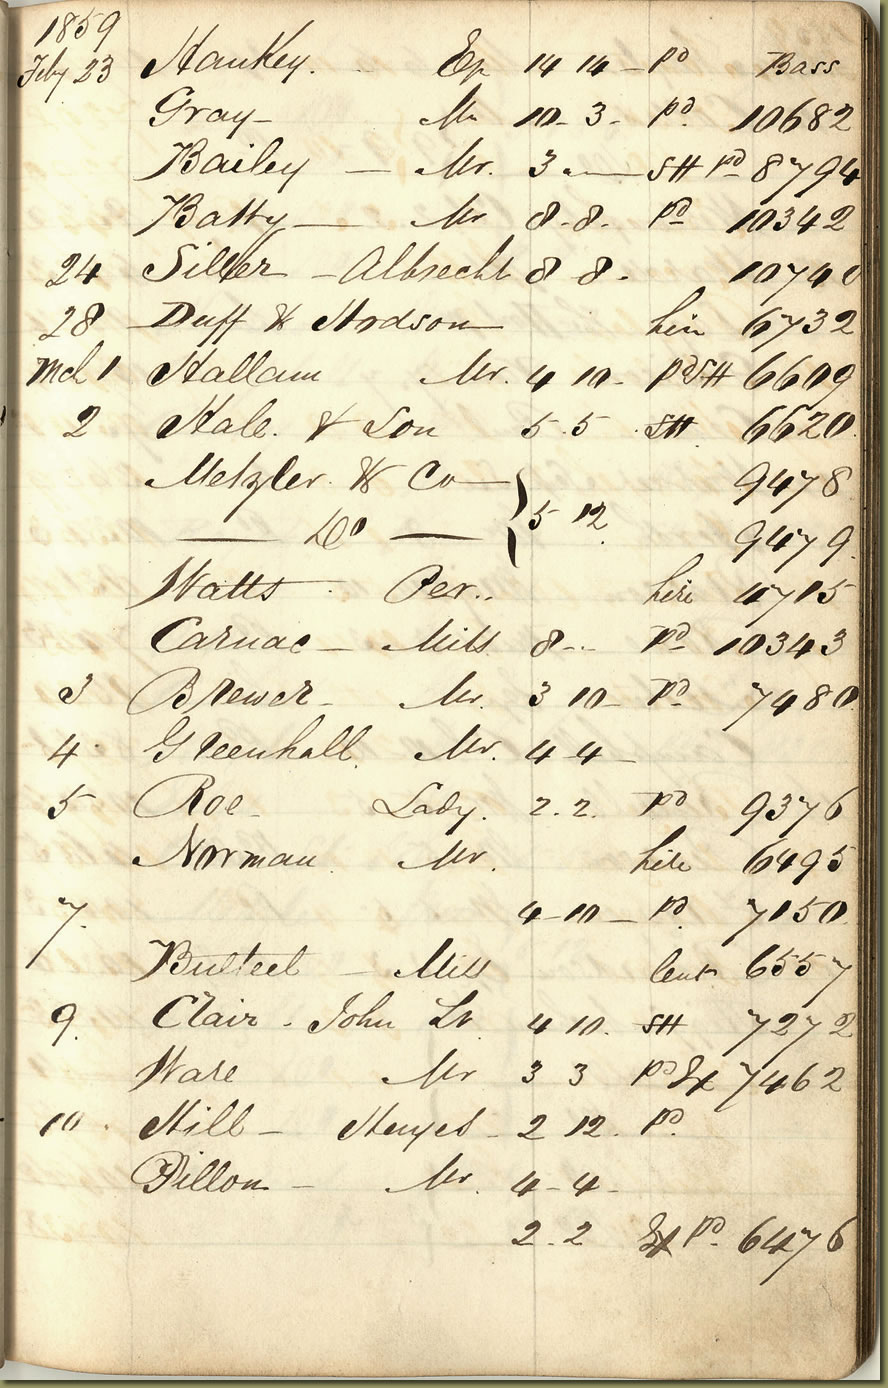 1859
Feby 23 Hankey. Esq 14 14 – Pd Bass
Gray – Mr 10 – 3 – Pd. 10682
Bailey — Mr. 3 – — SH Pd 8794
Batty — Mr 8 – 8 – Pd 10342
24 Silver – Albrecht 8 8 –
28 Duff & Hodson — 6732
Mch 1 Hallam Mr. 4 10 – Pd SH 6609
2 Hale. & Son 5 . 5 SH 6620
Metzler & Co — 9478
— Do — } 5 12 9479
Watts Per. hire 4715
Carnac – Miss 8 – – Pd 10343
3 Brewer – Mr. 3 10 – Pd 7480
4 Greenhall Mr. 4 – 4 –
5 Roe – Lady. 2 . 2 . Pd 9376
Norman Mr. hire 6495
7. 4 – 10 – Pd 7150
Bulteel – Miss lent 6557
9. Clair – John St 4 10 . SH 7272
Ware Mr 3 3 Pd Ex 7462
10 . Hill – 2 12 . Pd.
Dillon – Mr. 4 – 4 –
2 . 2 Ex Pd. 6476